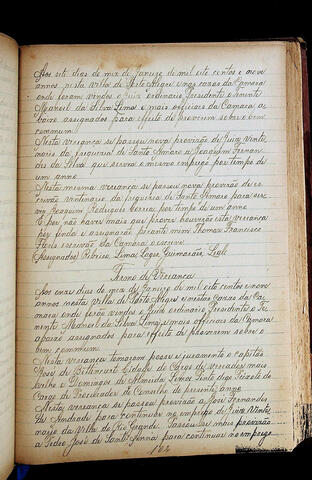 Aos sete dias do mez de Janeiro de mil oito centos e nove
annos nesta villa de Porto Alegre e nas casas da Camara
onde foram vindos o Juiz ordinario Presidente o Tenente
Manoel da Silva Lima e mais officiaes da Camara a
baixo assignados para effeito de proverem sobre o bem
commum.
Nesta vereança se passou nova provisão de Juiz Vinte
nario da freguezia de Santo Amaro a Joaquim Fernan
des da Silva que servira o mesmo emprego por tempo de
um anno.
Nesta mesma vereança se passou nova provisão de es
crivão vintenario da freguezia de Santo Amaro para ser
vir Joaquim Rodrigues Correa por tempo de um anno
E por não haver mais que prover houverão esta vereança
por finda e assignarão perante mim Thomaz Francisco
Flores escrivão da Camara o escrevi
Assignados Ribeiro, Lima, Lagos, Guimarães, Leal.
Termo de Vereança
Aos onze dias do mez de Janeiro de mil oito centos e nove
annos nesta Villa de Porto Alegre e nestas Casas da Ca
mara onde foram vindos o Juiz ordinario Presidente o Te
nente Manoel da Silva Lima e mais officiaes da Camara
abaixo assignados para effeito de proverem sobre o
bem commum.
Nesta vereança tomaram posse e juramento o capitão
José de Bittencourt Cidade do Cargo de vereador mais
velho e Domingos de Almeida Lemos Pinto digo Peixoto do
Cargo de Procurador do Conselho do presente anno
Nesta vereança se passou provisão a José Fernandes
de Andrade para continuar no emprego de Juiz Vinte
nario da Villa do Rio Grande. Passou-se mais provisão
a Pedro José de Sant'Anna para continuar no emprego
102